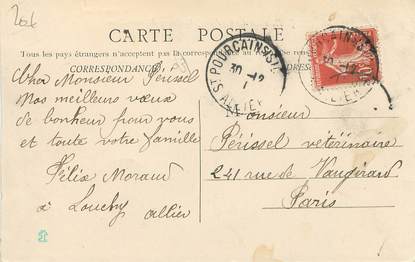 20t
CARTE POSTALE
Tous les pays étrangers n'acceptent pas la
CORRESPONDANCE
Cher Monsieur Périssel
Nos meilleurs vœux
de bonheur pour vous
et toute votre famille
Félix Moraud
à Louchy allier
ST POURCAIN S/SIOULE
30 -12
ALLIER
Monsieur
Périssel vétérinaire
241 rue de Vaugirard
Paris